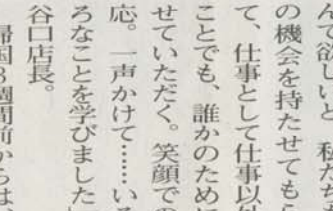 んで欲しいと 私たちも
の機会を持たせてもら
て、仕事として仕事以
ことでも、誰かのために
せていただく。笑顔での
応。一声かけて……いろ
ろなことを学びました
谷口店長。
帰国3週間前からは、